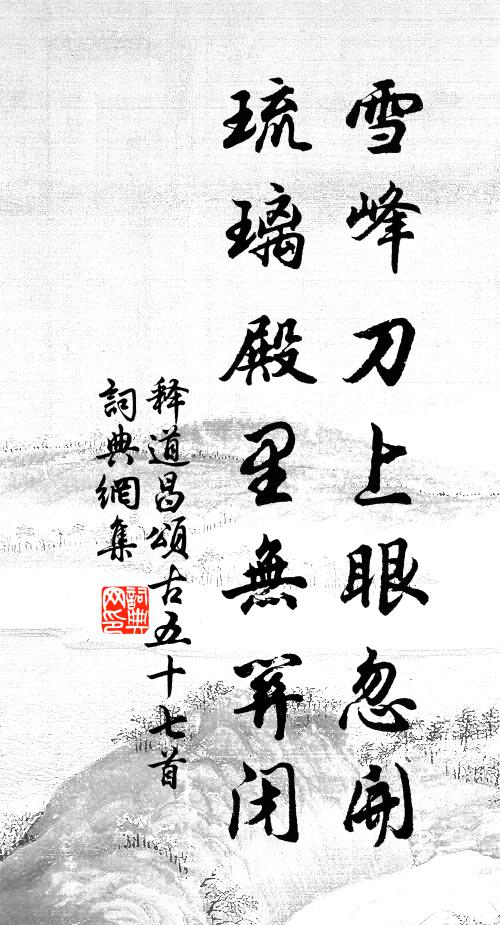 雪峰刀上眼忽開
琉璃殿里無閉
释道昌頌古五十七首
詞典網集
詞典网印